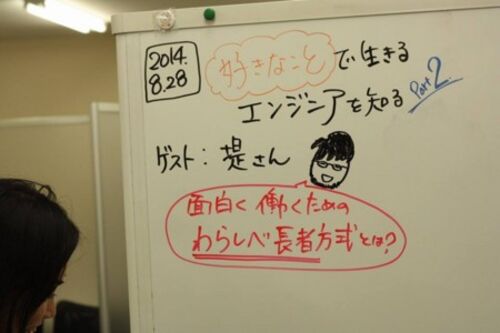 2014.
8.28
好きなことで生きる
エンジニアを知る Part 2
ゲスト：堤さん
面白く働くための
わらしべ長者方式とは?